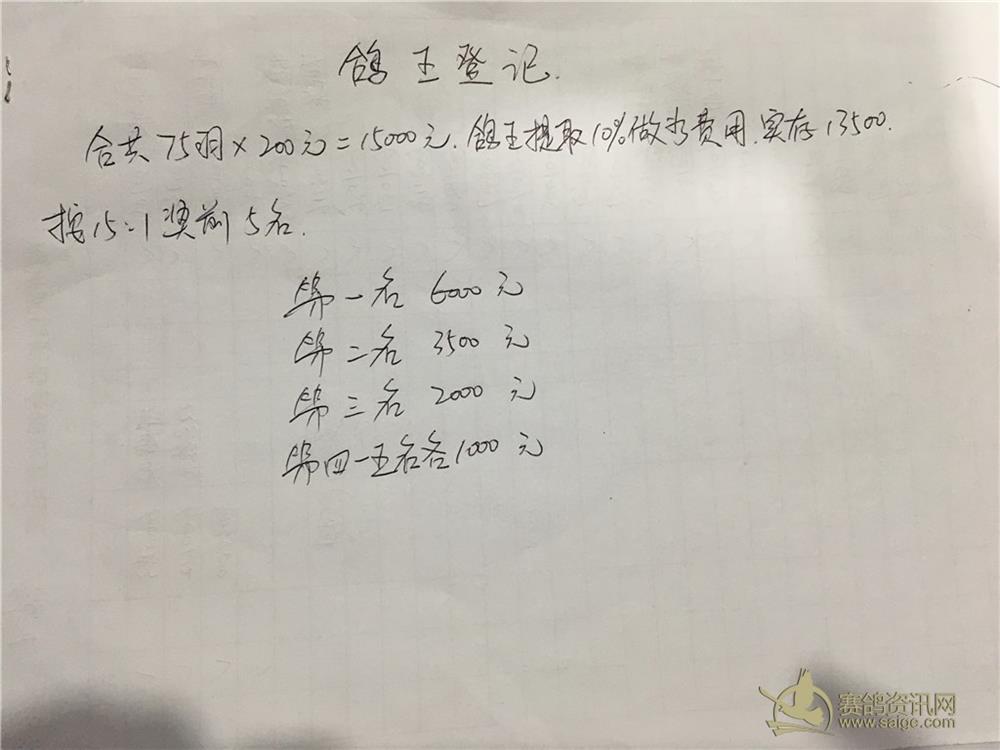 鸽王登记.
合共75羽×200元=15000元.鸽王提取10%做为费用.实存13500.
按15:1奖前5名.
第一名 6000元
第二名 3500元
第三名 2000元
第四一五名各1000元
赛鸽资讯网
www.saige.com